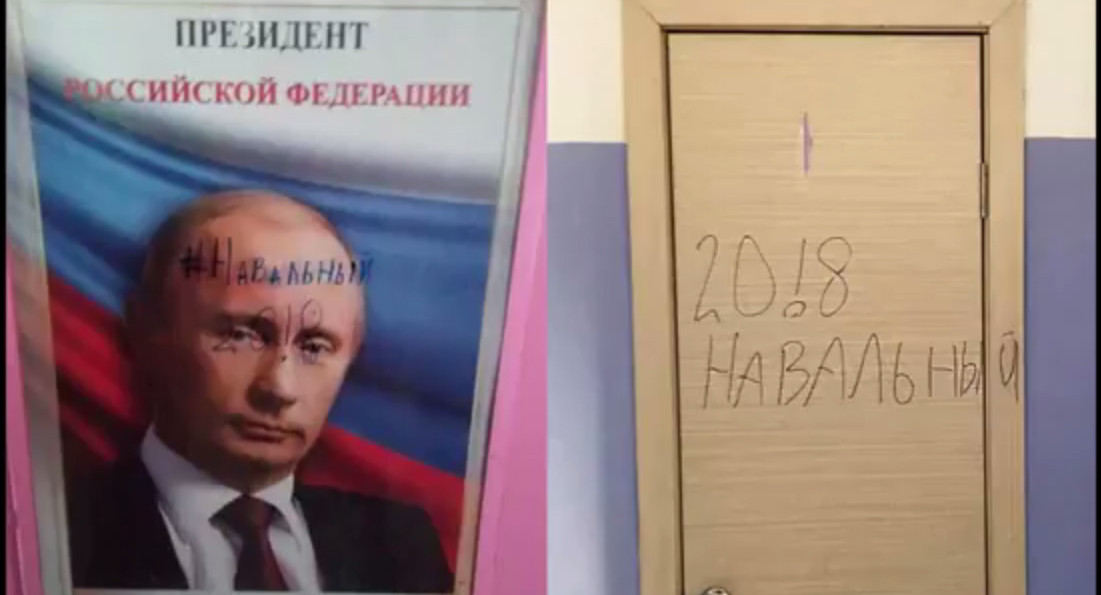 ПРЕЗИДЕНТ
РОССИЙСКОЙ ФЕДЕРАЦИИ
#НАВАЛЬНЫЙ
20!8
20!8
НАВАЛЬНЫЙ